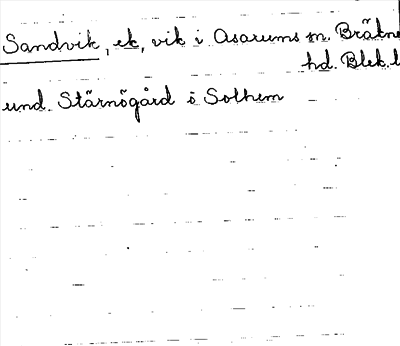 Sandvik, ek, vik i Asarums sn. Bräkne
hd. Blek. l
und. Stärnögård o Solhem